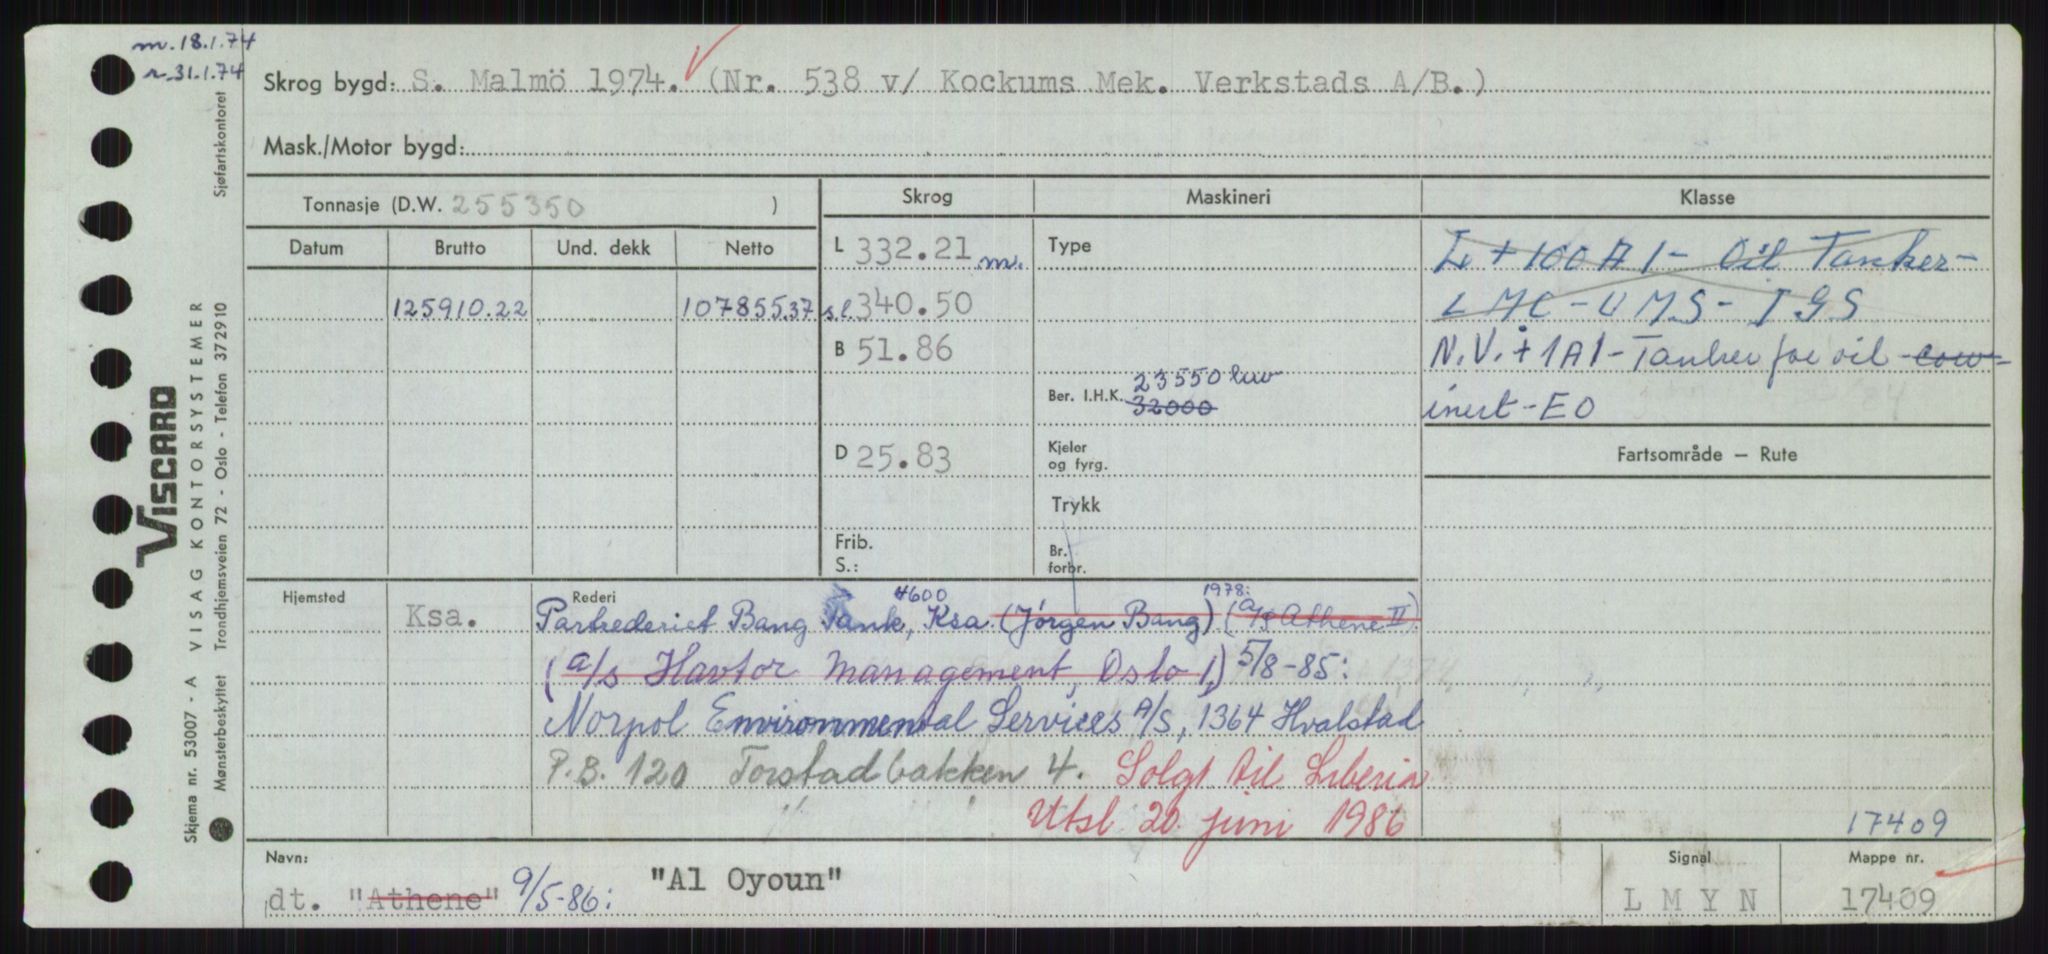 m. 18.1.74
r. 31.1.74
Skrog bygd: S. Malmö 1974. (Nr. 538 v/ Kockums Mek. Verkstads A/B.)
Mask./Motor bygd:
Tonnasje (D.W. 255350 )
Skrog
Maskineri
Klasse
Datum Brutto Und. dekk Netto
L 332.21 m.
Type
L + 100 A 1 - Oil Tanker -
125910.22 107855.37
s.l. 340.50
LMC - UMS - IGS
B 51.86
N.V. + 1A1 - Tanker for oil - cow -
Ber. I.H.K. 23550 kw
32000
inert - EO
D 25.83
Kjeler
og fyrg.
Fartsområde — Rute
Trykk
Frib.
S.:
Br.
forbr.
Hjemsted
Ksa.
Rederi
4600
1978:
Partrederiet Bang Tank, Ksa. (Jörgen Bang) (A/S Athene II)
(a/s Havtor Management, Oslo 1,) 5/8-85:
Norpol Environmental Services A/S, 1364 Hvalstad
P.B. 120 Torstadbakken 4. Solgt til Liberia
Utsl 20. juni 1986
17409
Navn:
dt. "Athene" 9/5-86: "Al Oyoun"
Signal
L M Y N
Mappe nr.
17409
Sjøfartskontoret
VISCARD
VISAG KONTORSYSTEMER
Trondhjemsveien 72 - Oslo - Telefon 372910
Skjema nr. 53007 - A
Mønsterbeskyttet